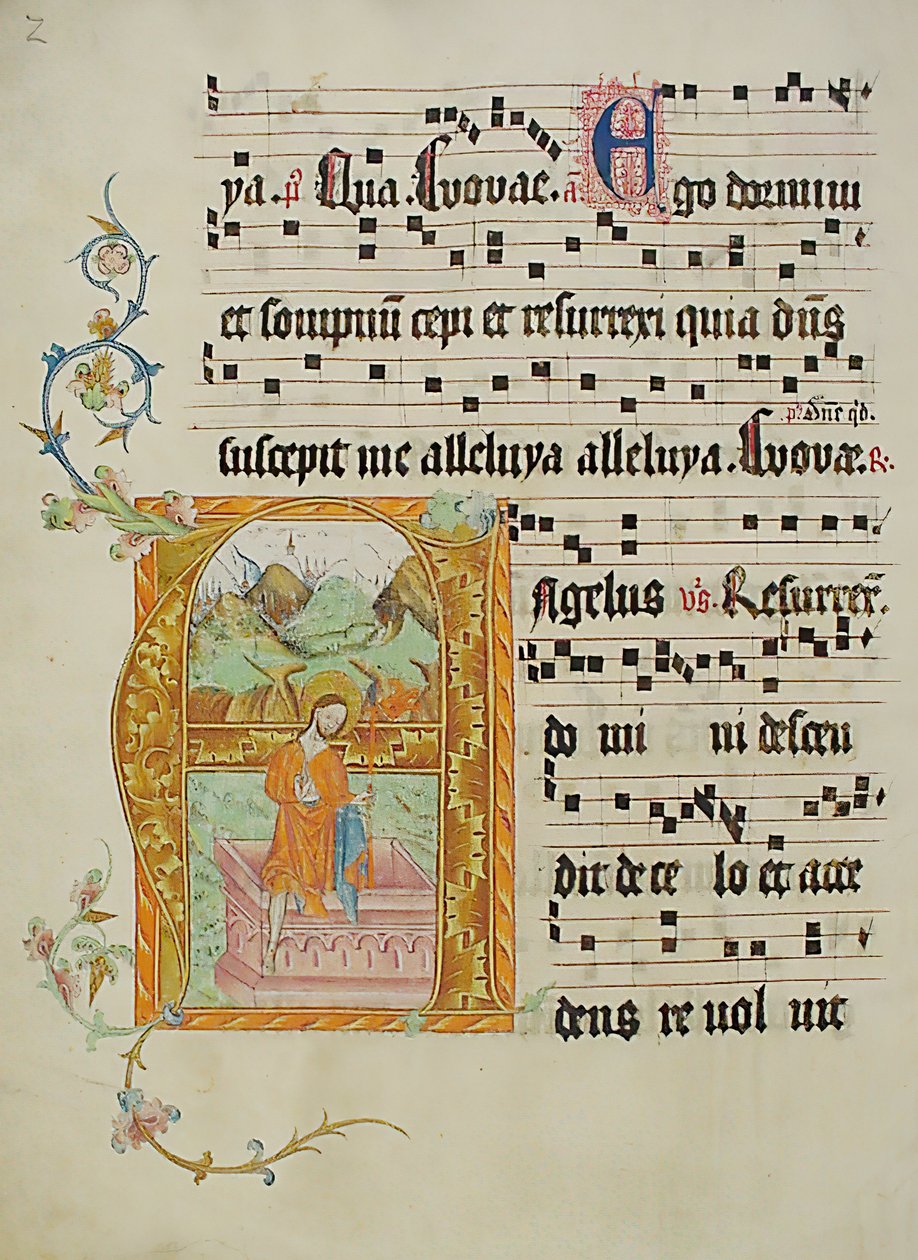 2
ya . p̃ Qua . Euouae . a̅ Ego dormiui
et sompnū cepi et resurrexi quia dn̄s
p̃s Dn̄e q̇d.
suscepit me alleluya alleluya . Euouae . R.
Agelus vs̃. Resurrex̄.
do mi ni descen
dit de ce lo et acce
dens re uol uit